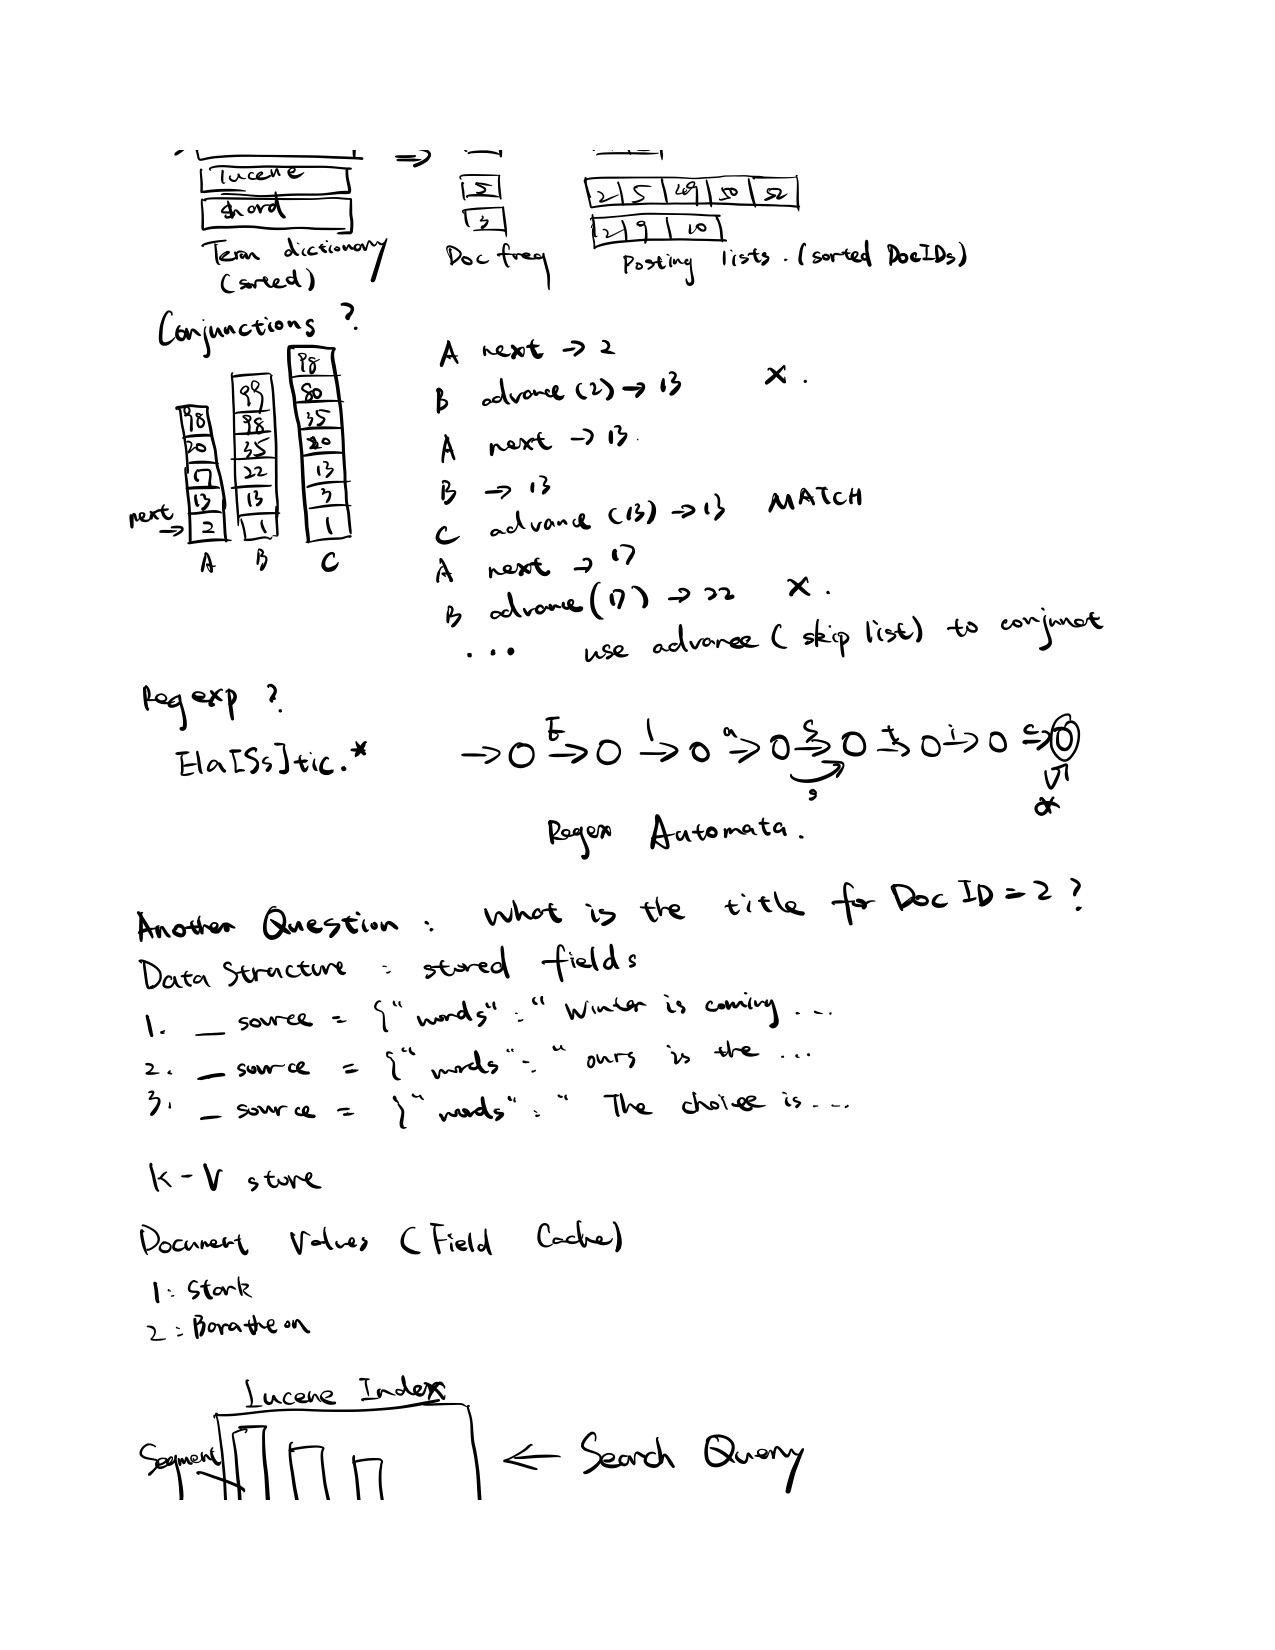 lucene
5
2 5 49 50 52
shard
3
2 9 10
Term dictionary
(sorted)
Doc freq
Posting lists. (sorted DocIDs)
Conjunctions ?
98
20
17
13
2
A
99
98
35
22
13
1
B
98
80
35
20
13
3
1
C
next →
A next → 2
B advance (2) → 13 X.
A next → 13.
B → 13
C advance (13) → 13 MATCH
A next → 17
B advance (17) → 22 X.
... use advance ( skip list) to conjunct
Regexp ?
Ela[Ss]tic.*
E l a S t i c
s
*
Regex Automata.
Another Question : What is the title for Doc ID = 2 ?
Data Structure : stored fields
1. _ source = {"words" : "Winter is coming ...
2. _ source = {"words" : "ours is the ...
3. _ source = {"words" : "The choice is ...
K-V store
Document Values (Field Cache)
1: Stark
2: Baratheon
Lucene Index
Segment
← Search Query